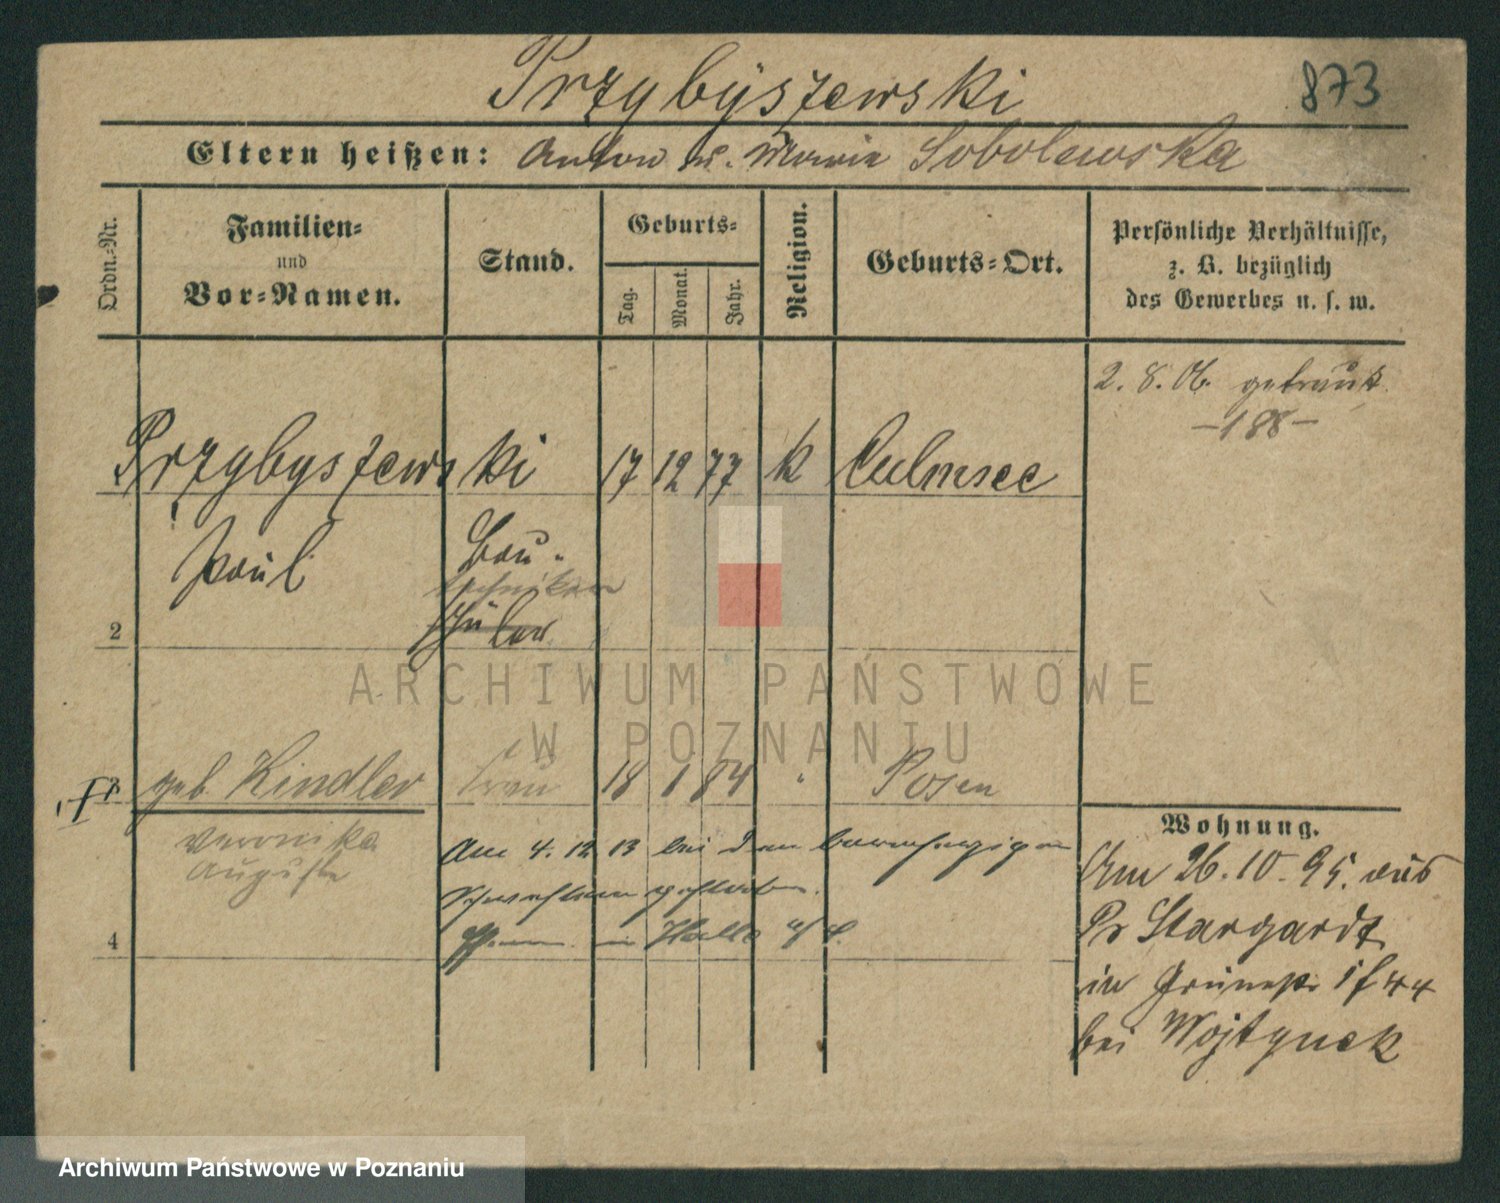 Przybyszewski
873
Eltern heißen: Anton u. Maria Sobolewska
Ordn.-Nr.
Familien-
und
Vor-Namen.
Stand.
Geburts-
Tag.
Monat.
Jahr.
Religion.
Geburts-Ort.
Persönliche Verhältnisse,
z. B. bezüglich
des Gewerbes u. s. w.
2. 8. 06. getraut
-188-
Przybyszewski 17 12 77 k Culmsee
Paul Bau-
techniker
schüler
2
ARCHIWUM PAŃSTWOWE
W POZNANIU
geb. Kindler Frau 18 1 84 " Posen
Veronika
Auguste
Am 4. 12 13 bei den barmherzigen
Schwestern gestorben.
in Halle a/S.
4
Wohnung.
Am 26. 10. 95. aus
Pr Stargardt
in Grünestr 1 f 44
bei Wojtynek
Archiwum Państwowe w Poznaniu